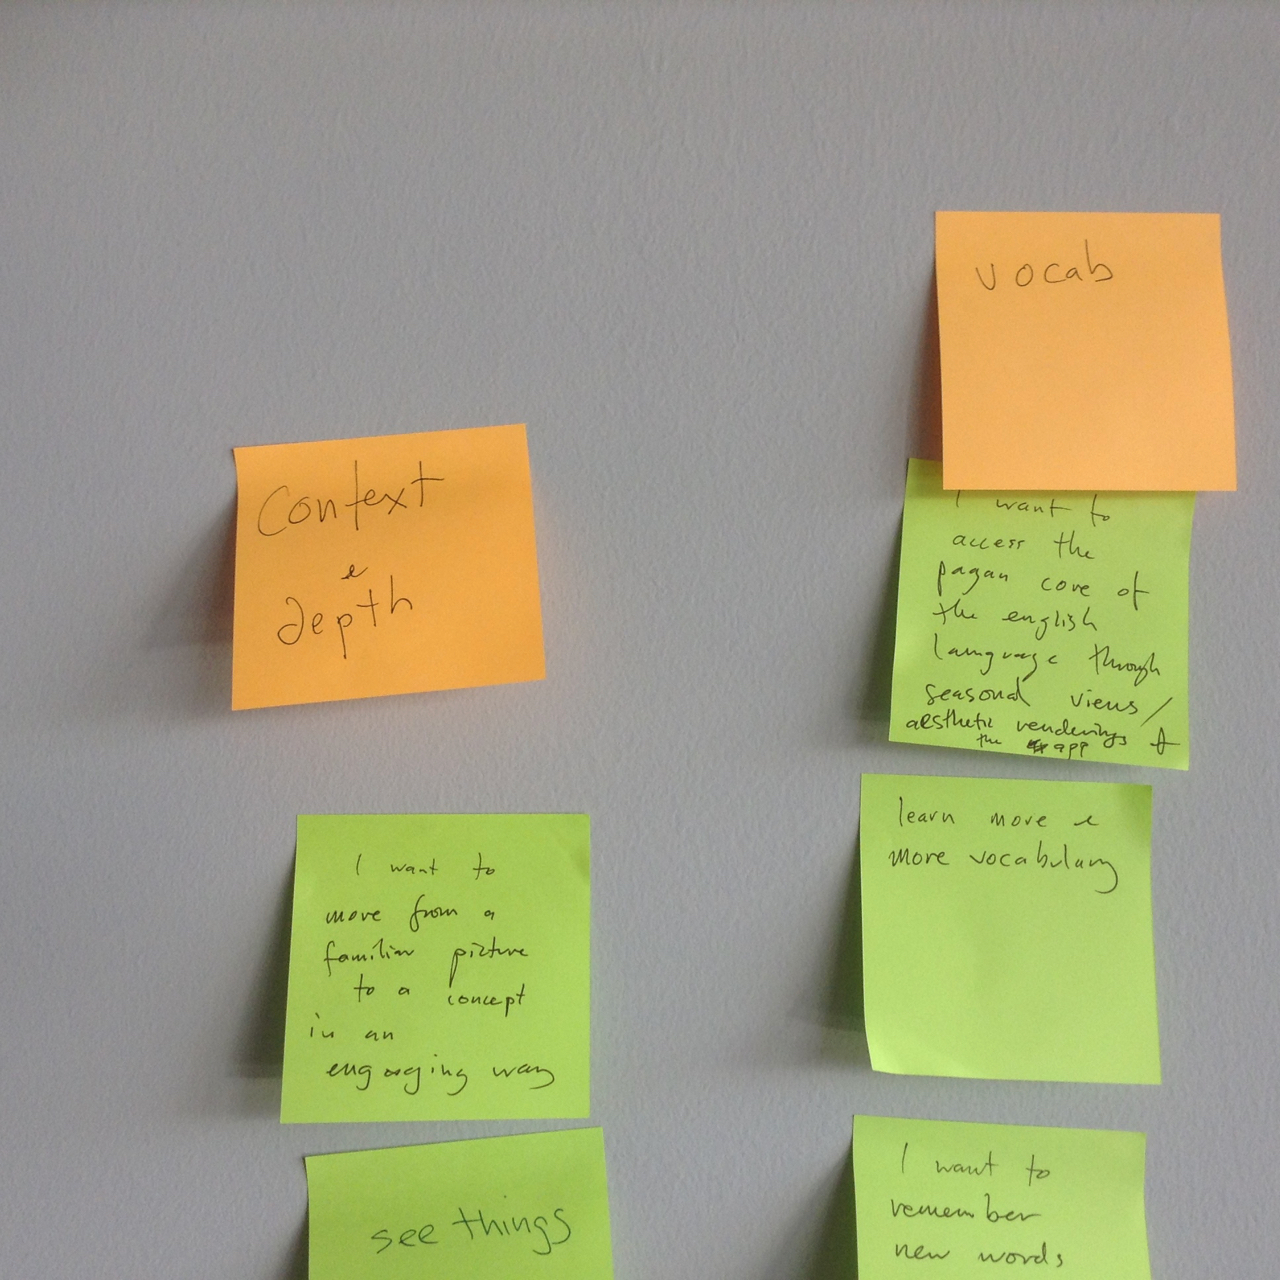 Context
&
depth
I want to
move from a
familiar picture
to a concept
in an
engaging way
see things
vocab
I want to
access the
pagan core of
the english
language through
seasonal views /
aesthetic renderings of
the app
learn more &
more vocabulary
I want to
remember
new words